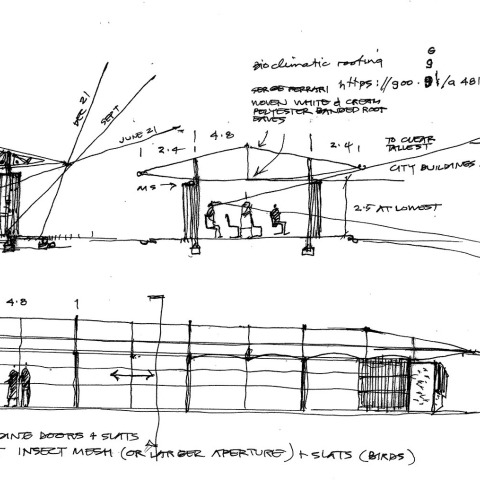 G
Bioclimatic roofing g
SERGE FERRARI https://goo.gl/a481
WOVEN WHITE & CREAM
POLYESTER BANDED ROOF
EAVES
DEC 21
SEPT
JUNE 21
2.4 4.8 2.4
TO CLEAR
TALLEST
CITY BUILDINGS
MS
2.5 AT LOWEST
4.8
DOORS + SLATS
INSECT MESH (OR LARGER APERTURE) + SLATS (BIRDS)